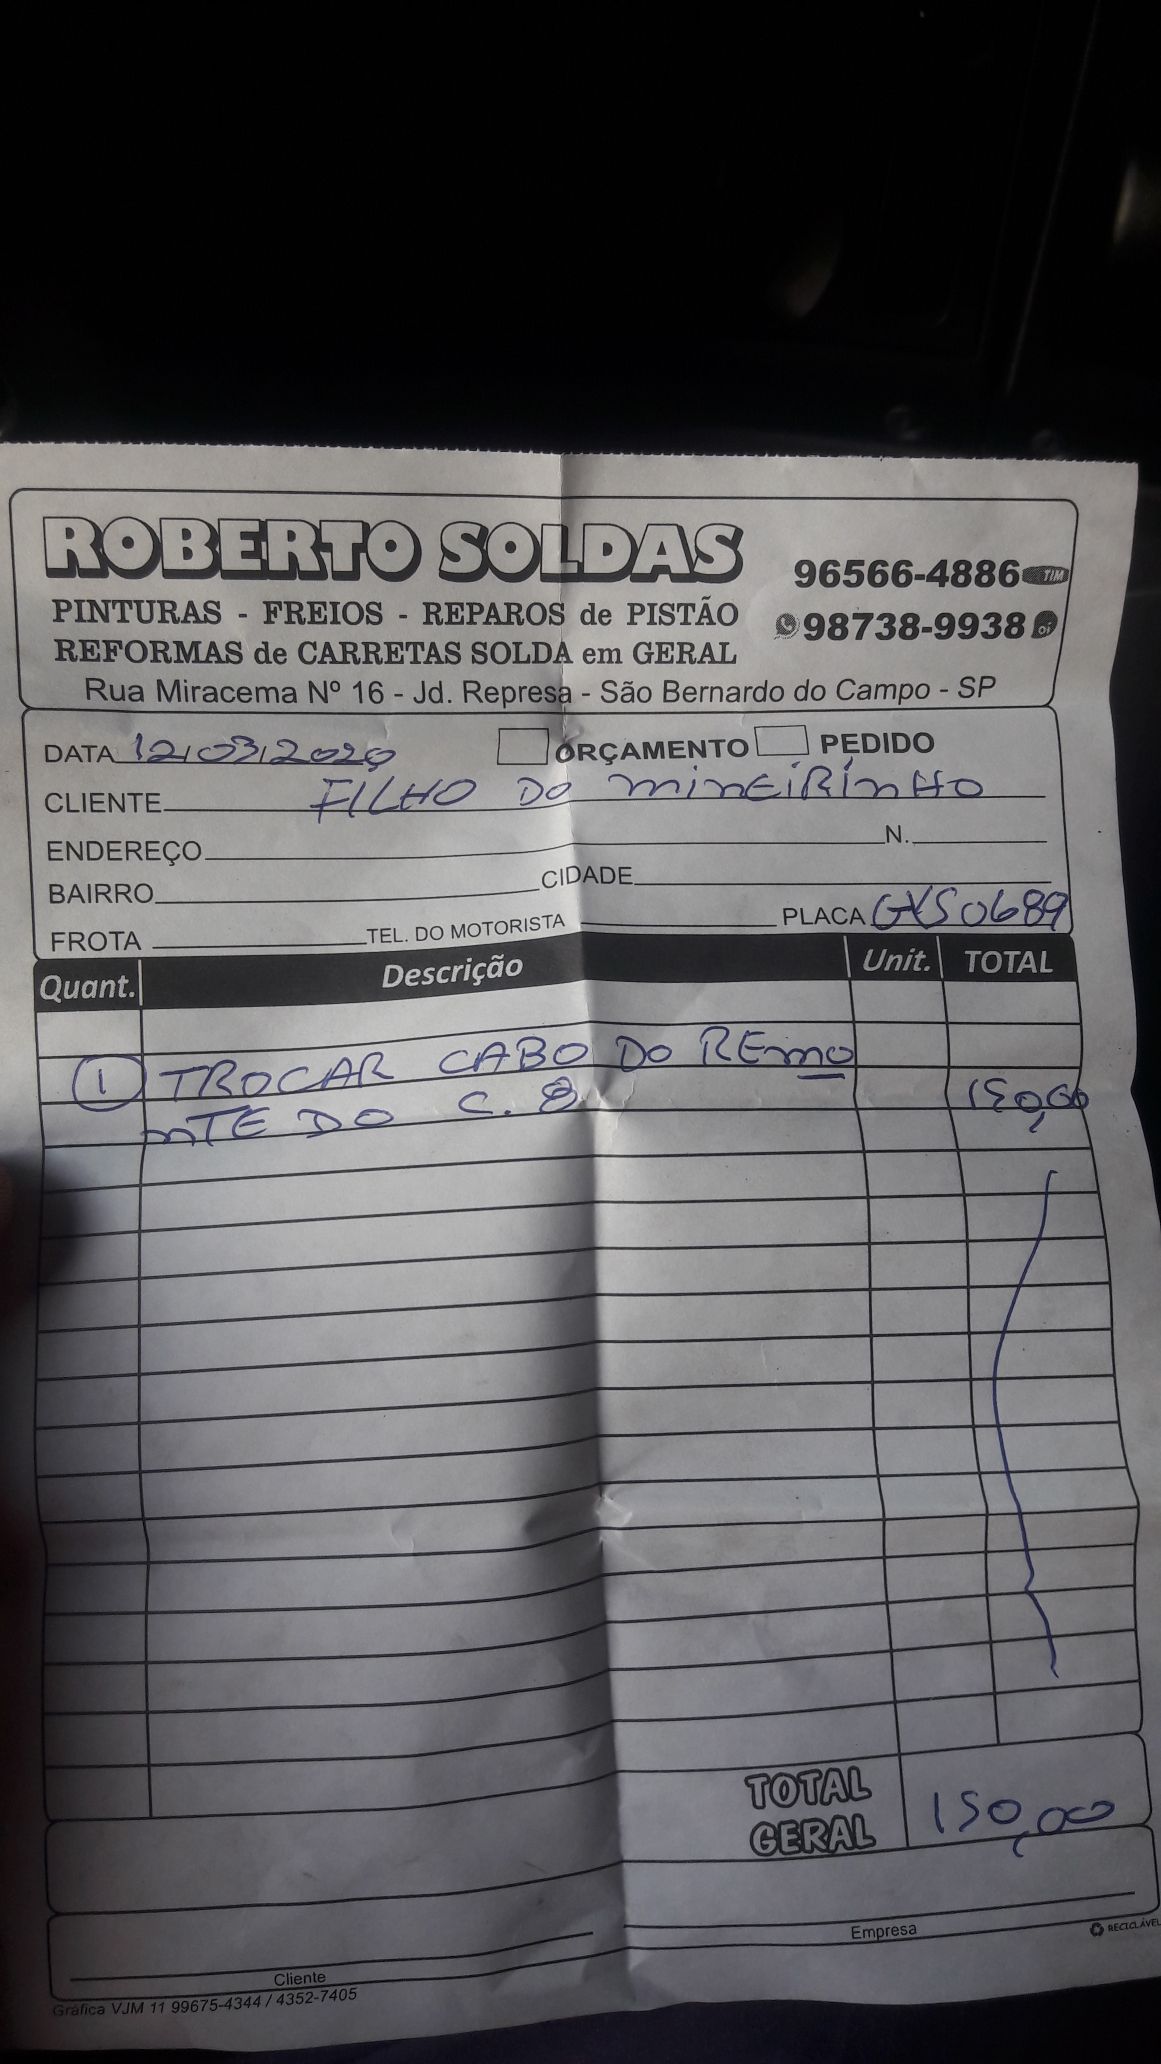 ROBERTO SOLDAS
96566-4886 TIM
PINTURAS - FREIOS - REPAROS de PISTÃO
98738-9938 oi
REFORMAS de CARRETAS SOLDA em GERAL
Rua Miracema Nº 16 - Jd. Represa - São Bernardo do Campo - SP
DATA 12/03/2020 ORÇAMENTO PEDIDO
CLIENTE FILHO DO MINEIRINHO
ENDEREÇO N.
BAIRRO CIDADE
FROTA TEL. DO MOTORISTA PLACA GXS0689
Quant. Descrição Unit. TOTAL
1 TROCAR CABO DO REMO
NTE DO C. 8 150,00
TOTAL GERAL 150,00
Cliente Empresa RECICLÁVEL
Gráfica VJM 11 99675-4344 / 4352-7405